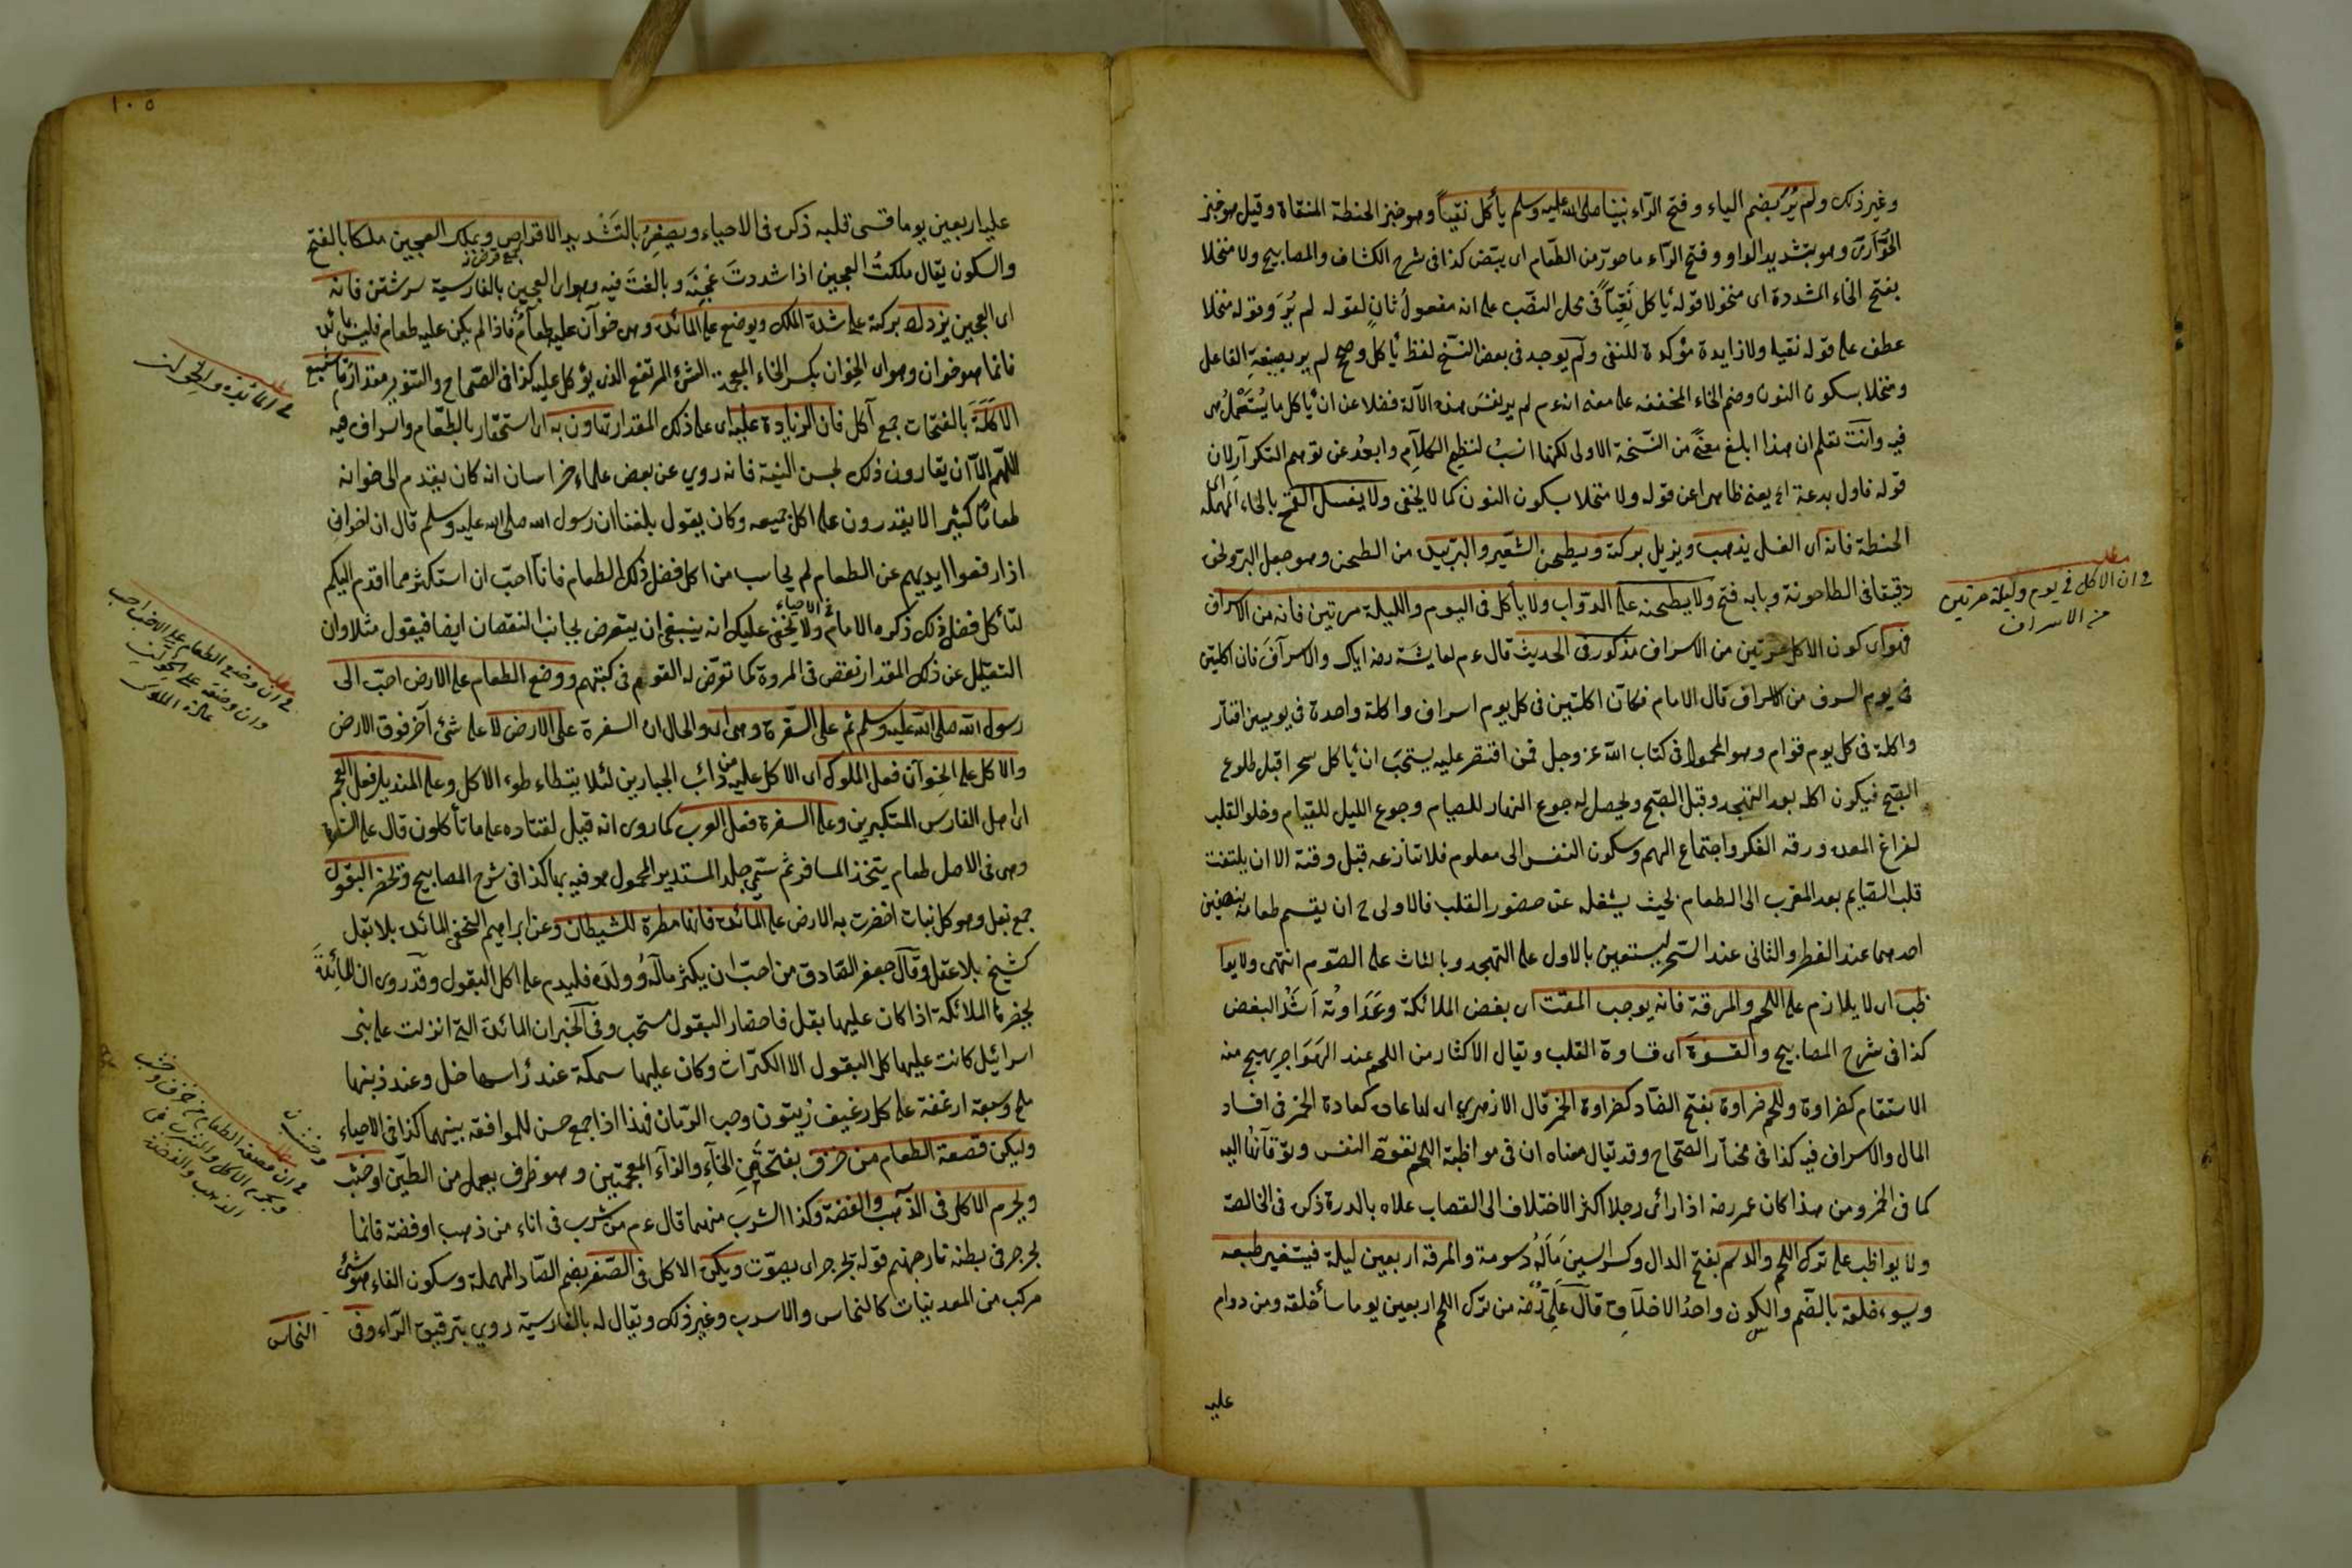 وغير ذلك ولم يُرَ بضم الياء وفتح الرّاء نبينا صلى الله عليه وسلم يأكل نقياً وهو خبز الحنطة المنقاة وقيل هو خبز
الحُوّارى وهو بتشديد الواو وفتح الرّاء ما حوّر من الطّعام اى يبيّض كذا فى شرح الكشاف والمصابيح ولا منخلا
بفتح الخاء المشددة اى منخولا قوله يأكل نَقِيّاً فى محل النصّب على انه مفعولُ ثانٍ لقوله لم يُرَ وقوله منخلا
عطف على قوله نقيا ولا زايدة مؤكدة للنفى ولم يوجد فى بعض النسّخ لفظ يأكل وصح لم ير بصيغة الفاعل
ومنخلا بسكون النون وضم الخاء المخففه على معنى انه ءم لم ير نفسَ هذه الآلة فضلا عن ان يأكل ما يُسْتَعْمَلُ هى
فيه وانت تعلم ان هذا ابلغ معنىً من النّسخة الاولى لكنها انسبُ لنظم الكلام وابعدُ عن توهم التكرار لان
قوله فاول بدعة اه يعنى ظاهرا عن قوله ولا منخلا بسكون النون كما لا يخفى ولا يغسل القمح بالحاء المهملة اى
الحنطة فانه اى الغسل يذهب ويزيل بركته ويطحن الشّعير والبُرّ بيده من الطحن وهو جعل البرّ ونحوه
دقيقا فى الطاحونة وبابه فتح ولا يطحنه على الدوّاب ولا يأكل فى اليوم والليلة مرتين فانه من الاسراف
فهو اى كون الاكل مرتين من الاسراف مذكور فى الحديث قال ءم لعايشة رضه اياك والاسراف فان اكلتين
فى يوم السرف من الاسراف قال الامام فكان اكلتين فى كل يوم اسراف واكلة واحدة فى يومين اقتار
واكلة فى كل يوم قوام وهو المحمود فى كتاب الله عز وجل فمن اقتصر عليه يستحبّ ان يأكل سحرا قبل طلوع
الصّبح فيكون اكله بعد التهجد وقبل الصّبح ويحصل له جوع النهار للصيام وجوع الليل للقيام وخلو القلب
لفراغ المعده ورقه الفكر واجتماع الهم وسكون النفس الى معلوم فلا تنازعه قبل وقته الا ان يلتفت
قلب الصّايم بعد المغرب الى الطعام بحيث يشغله عن حضور القلب فالاولى ح ان يقسم طعامه بنصفين
احدهما عند الفطر والثانى عند السّحر ليستعين بالاول على التهجد وبالثانى على الصّوم انتهى ولا يوا
ظب اى لا يلازم على اللحم والمرقة فانه يوجب المقت اى بغض الملائكة وعَدَاوته اَشدّ البغض
كذا فى شرح المصابيح والقسوة اى قساوة القلب ويقال الاكثار من اللحم عند الهَوَاجر يهيج منه
الاسقام كضراوة وللحم ضراوة بفتح الضّاد كضراوة الخمر قال الازهرى اى لها عادة كعادة الخمر فى افساد
المال والاسراف فيه كذا فى مختار الصّحاح وقد يقال معناه ان فى مواظبة اللحم تقوية النفس وتوقانها اليه
كما فى الخمر ومن هذا كان عمر رضه اذا رأى رجلا اكثر الاختلاف الى القصاب علاه بالدرة ذكره فى الخالصة
ولا يواظب على ترك اللحم والدسم بفتح الدال وكسر السين مَالَهُ دسومة والمرقة اربعين ليلة فيتغير طبعه
ويسوء خلقه بالضّم والسكون واحدُ الاخلاق قال عَلِىّ رُضه من ترك اللحم اربعين يوما سأ خلقه ومن دوام
عليه
مطلب
فى ان الاكل فى يوم وليلة مرتين
من الاسراف
١٠٥
عليه اربعين يوما قسى قلبه ذكره فى الاحياء ويصغّر بالتَشْديد الاقراص ويملك العجين ملكا بالفتح
جمع قرص
والسكون يقال ملكتُ العجين اذا شددتَ عَجْنَه وبالغتَ فيه وهو اى العجين بالفارسية سرشتن فانه
اى العجين يزداد بركة على شدة الملك ويوضع على المائدة وهى خوآن عليه طعام فاذا لم يكن عليه طعام فليس بمائدة
فانما هو خوان وهو اى الخِوان بكسر الخاء المعجمة الشئ المرتفع الذى يؤكل عليه كذا فى الصّحاح والتنوير مقدار ما شبع
الاكَلَة بالفتحات جمع آكل فان الزيادة عليه اى على ذلك المقدار تهاون به اى استحقار بالطعّام واسراف فيه
اللهمّ الاّ ان يقارون ذلك لحسن النية فانه روي عن بعض علماء خراسان انه كان يقدم الى خوانه
طعامًا كثيرا لا يقدرون على اكل جميعه وكان يقول بلغنا ان رسول الله صلى الله عليه وسلم قال ان اخوانى
اذا رفعوا ايديهم عن الطعام لم يحاسب من اكل فضل ذلك الطعام فانّا احبّ ان استكثر مما اقدم اليكم
لتأكل فضل ذلك ذكره الامام فى الاحياء ولا يخفى عليك انه ينبغى ان يتعرض لجانب النقصان ايضا فيقول مثلا وان
التقليل عن ذلك المقدار نقص فى المروة كما تعرّض له القوم فى كتبهم ووضع الطعام على الارض احبّ الى
رسول الله صلى الله عليه وسلم ثم على السّفرة وهى اه والحال ان السفرة على الارض لا على شئ آخر فوق الارض
والاكل على الخوان فعل الملوك اى الاكل عليه من دائب الجبارين لئلا يتطاءطوء الاكل وعلى المنديل فعل العجم
اى اهل الفارس المتكبرين وعلى السفرة فعل العرب كما روى انه قيل لقتاده على ما تأكلون قال على السفرة
وهى فى الاصل طعام يتخذه المسافر ثم سمّى جلد المستدير المحمول هو فيه بها كذا فى شرح المصابيح وتحضر البقول
جمع بقل وهو كل نبات اخضرت به الارض على المائدة فانها مطردة للشيطان وعن ابراهيم النخعى المائدة بلا بقل
كشيخ بلا عقل وقال جعفر الصّادق من احبّ ان يكثر مالُهُ وولده فليدم على اكل البقول وقد روى ان المائدةَ
يحضرها الملائكة اذا كان عليها بقل فاحضار البقول مستحب وفى الخبر ان المائدة التى انزلت على بنى
اسرائيل كانت عليها كل البقول الا الكرّاث وكان عليها سمكة عند رأسها خل وعند ذنبها
ملح وسبعة ارغفة على كل رغيف زيتون وحب الرّمان فهذا اذا جمع حسن للموافقه بينهما كذا فى الاحياء
وليكن قصعة الطعام من خزف بفتحتين الخآءِ والزآء المعجمتين وهو ظرف يعمل من الطّين او خشب
ويحرم الاكل فى الذهب والفضة وكذا الشرب منهما قال ءم من شرب فى اناء من ذهب او فضة فانما
يجرجر فى بطنه نار جهنم قوله يجرجر اى يصوّت ويكره الاكل فى الصّفر بضم الصّاد المهملة وسكون الفاء هو شئ
مركب من المعدنيات كالنحاس والاسرب وغير ذلك ويقال له بالفارسيّة روي بترقيق الرّاء وفى
النحاس
مطلب
فى المائدة والخوان
مطلب
فى ان وضع الطعام على الارض احب
وان وضعه على الخوان
عادة الملوك
مطلب
فى ان قصعة الطعام من خزف او خشب
ويحرم الاكل والشرب فى
الذهب والفضة